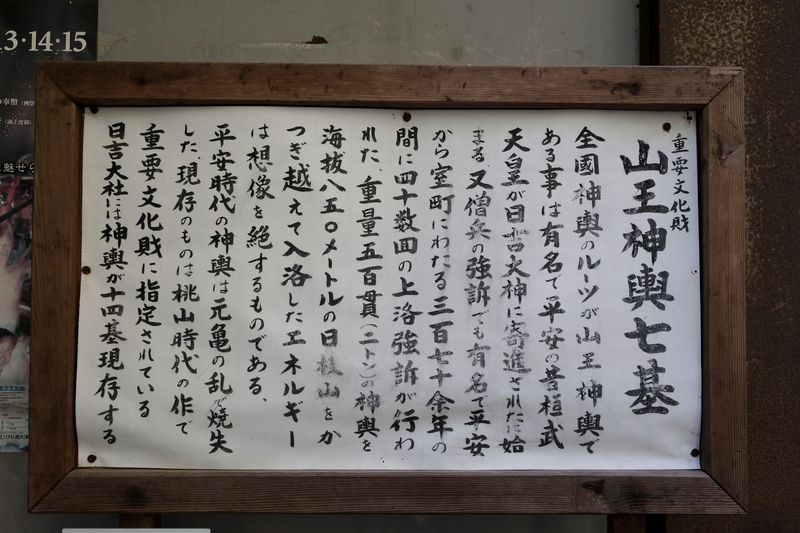 重要文化財
山王神輿七基
全國神輿のルーツが山王神輿で
ある事は有名で平安の昔桓武
天皇が日吉大神に寄進された始
まる、又僧兵の強訴でも有名で平安
から室町にわたる三百七十余年の
間に四十数回の上洛強訴が行わ
れた、重量五百貫(二トン)の神輿を
海抜八五〇メートルの日枝山をか
つぎ越えて入洛したエネルギー
は想像を絶するものである、
平安時代の神輿は元亀の乱で焼失
した、現存のものは桃山時代の作で
重要文化財に指定されている
日吉大社には神輿が十四基現存する
13·14·15